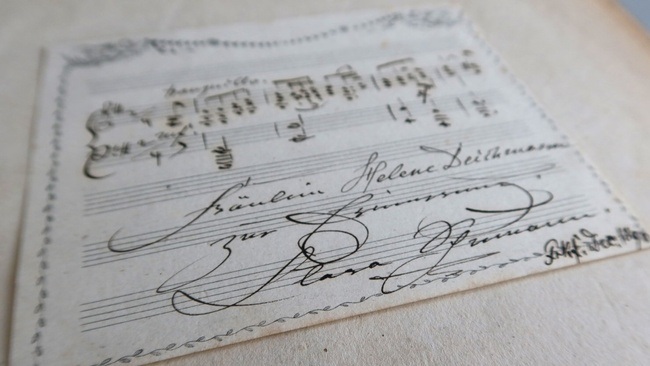 tranquillo
Fräulein Helene Deichmann
zur Erinnerung
Clara Schumann.